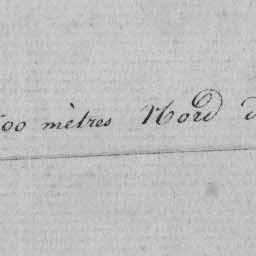 00 mètres Nord